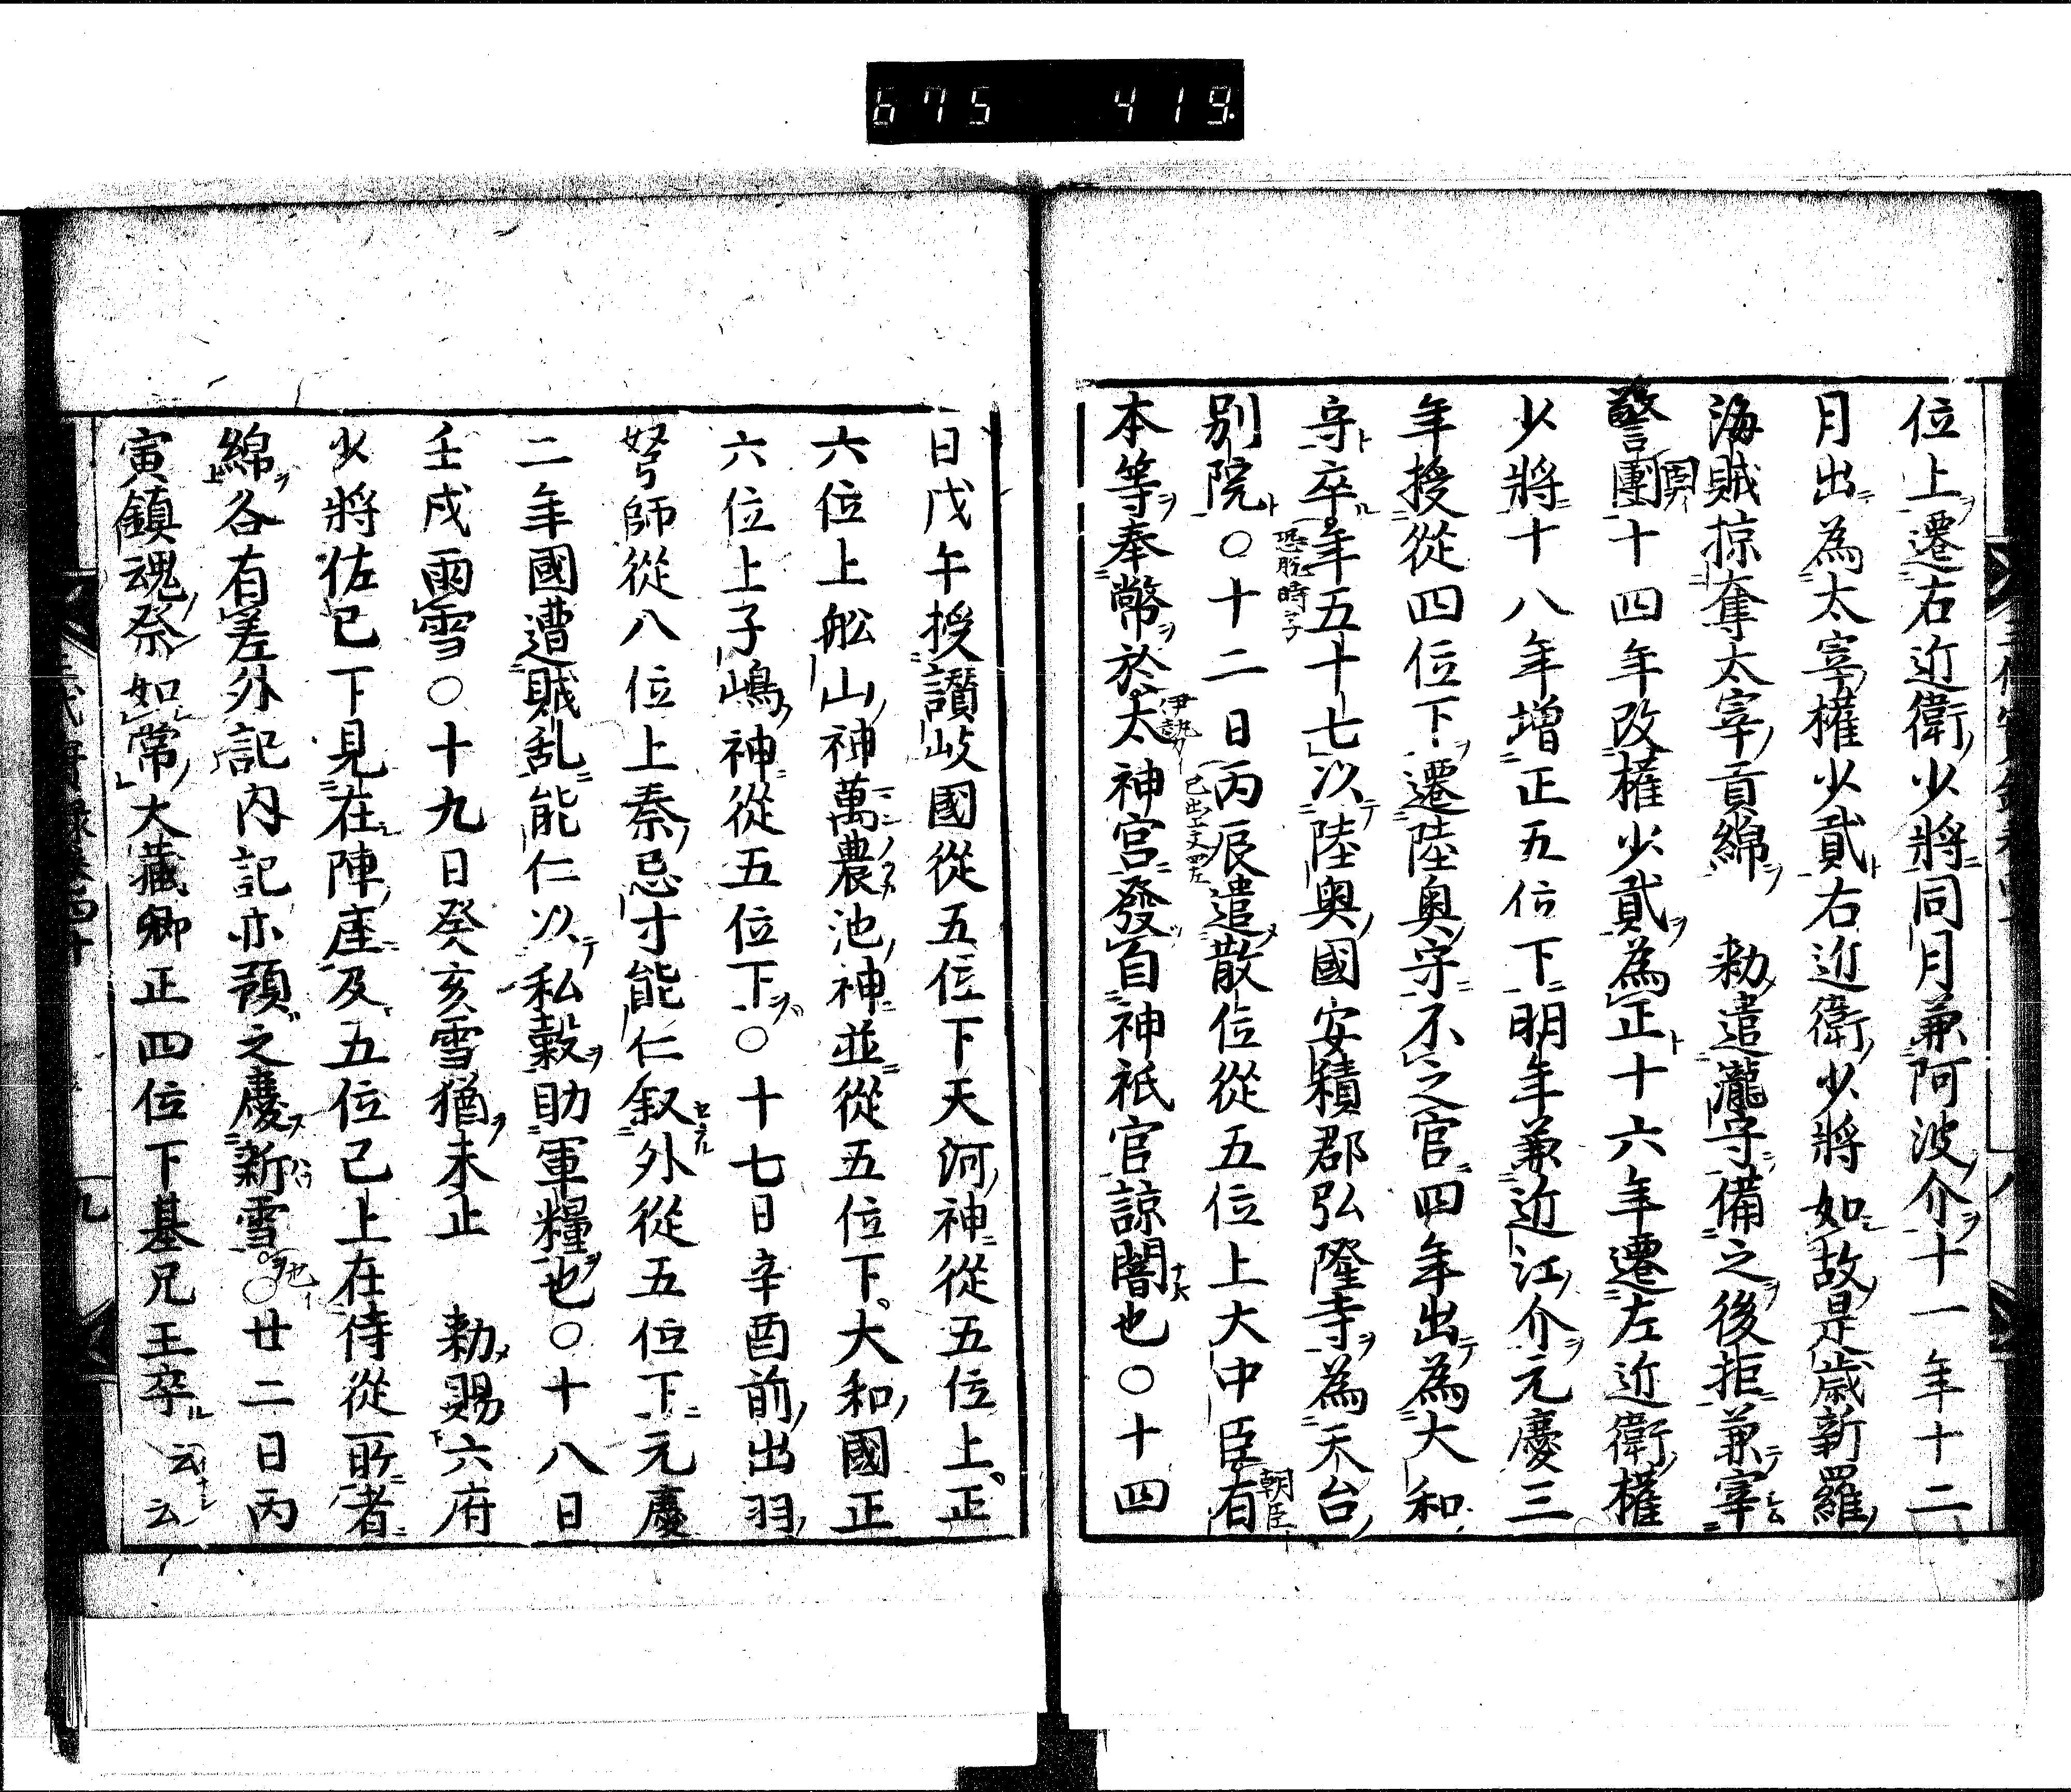 675 419
位上遷右近衛少將同月兼阿波介十一年十二
月出為太宰權少貳右近衛少將如故是歳新羅
海賊掠奪太宰貢綿 勅遣瀧守備之後拒兼宰
警團十四年改權少貳為正十六年遷左近衛權
少將十八年増正五位下明年兼近江介元慶三
年授從四位下遷陸奥守不之官四年出為大和
守卒年五十七以陸奥國安積郡弘隆寺為天台
恐脱時字
別院〇十二日丙辰遣散位從五位上大中臣有
朝臣
本等奉幣於太神宮發自神祇官諒闇也〇十四
伊勢
日戊午授讃岐國從五位下天河神從五位上正
六位上舩山神萬農池神並從五位下大和國正
六位上子嶋神從五位下〇十七日辛酉前出羽
弩師從八位上秦忌寸能仁叙外從五位下元慶
二年國遭賊乱能仁以私穀助軍糧也〇十八日
壬戌雨雪〇十九日癸亥雪猶未止 勅賜六府
少將佐已下見在陣座及五位已上在侍從所者
綿各有差外記内記亦預之慶新雪〇廿二日丙
寅鎮魂祭如常大藏卿正四位下基兄王卒云云
三代實録卷四十
九